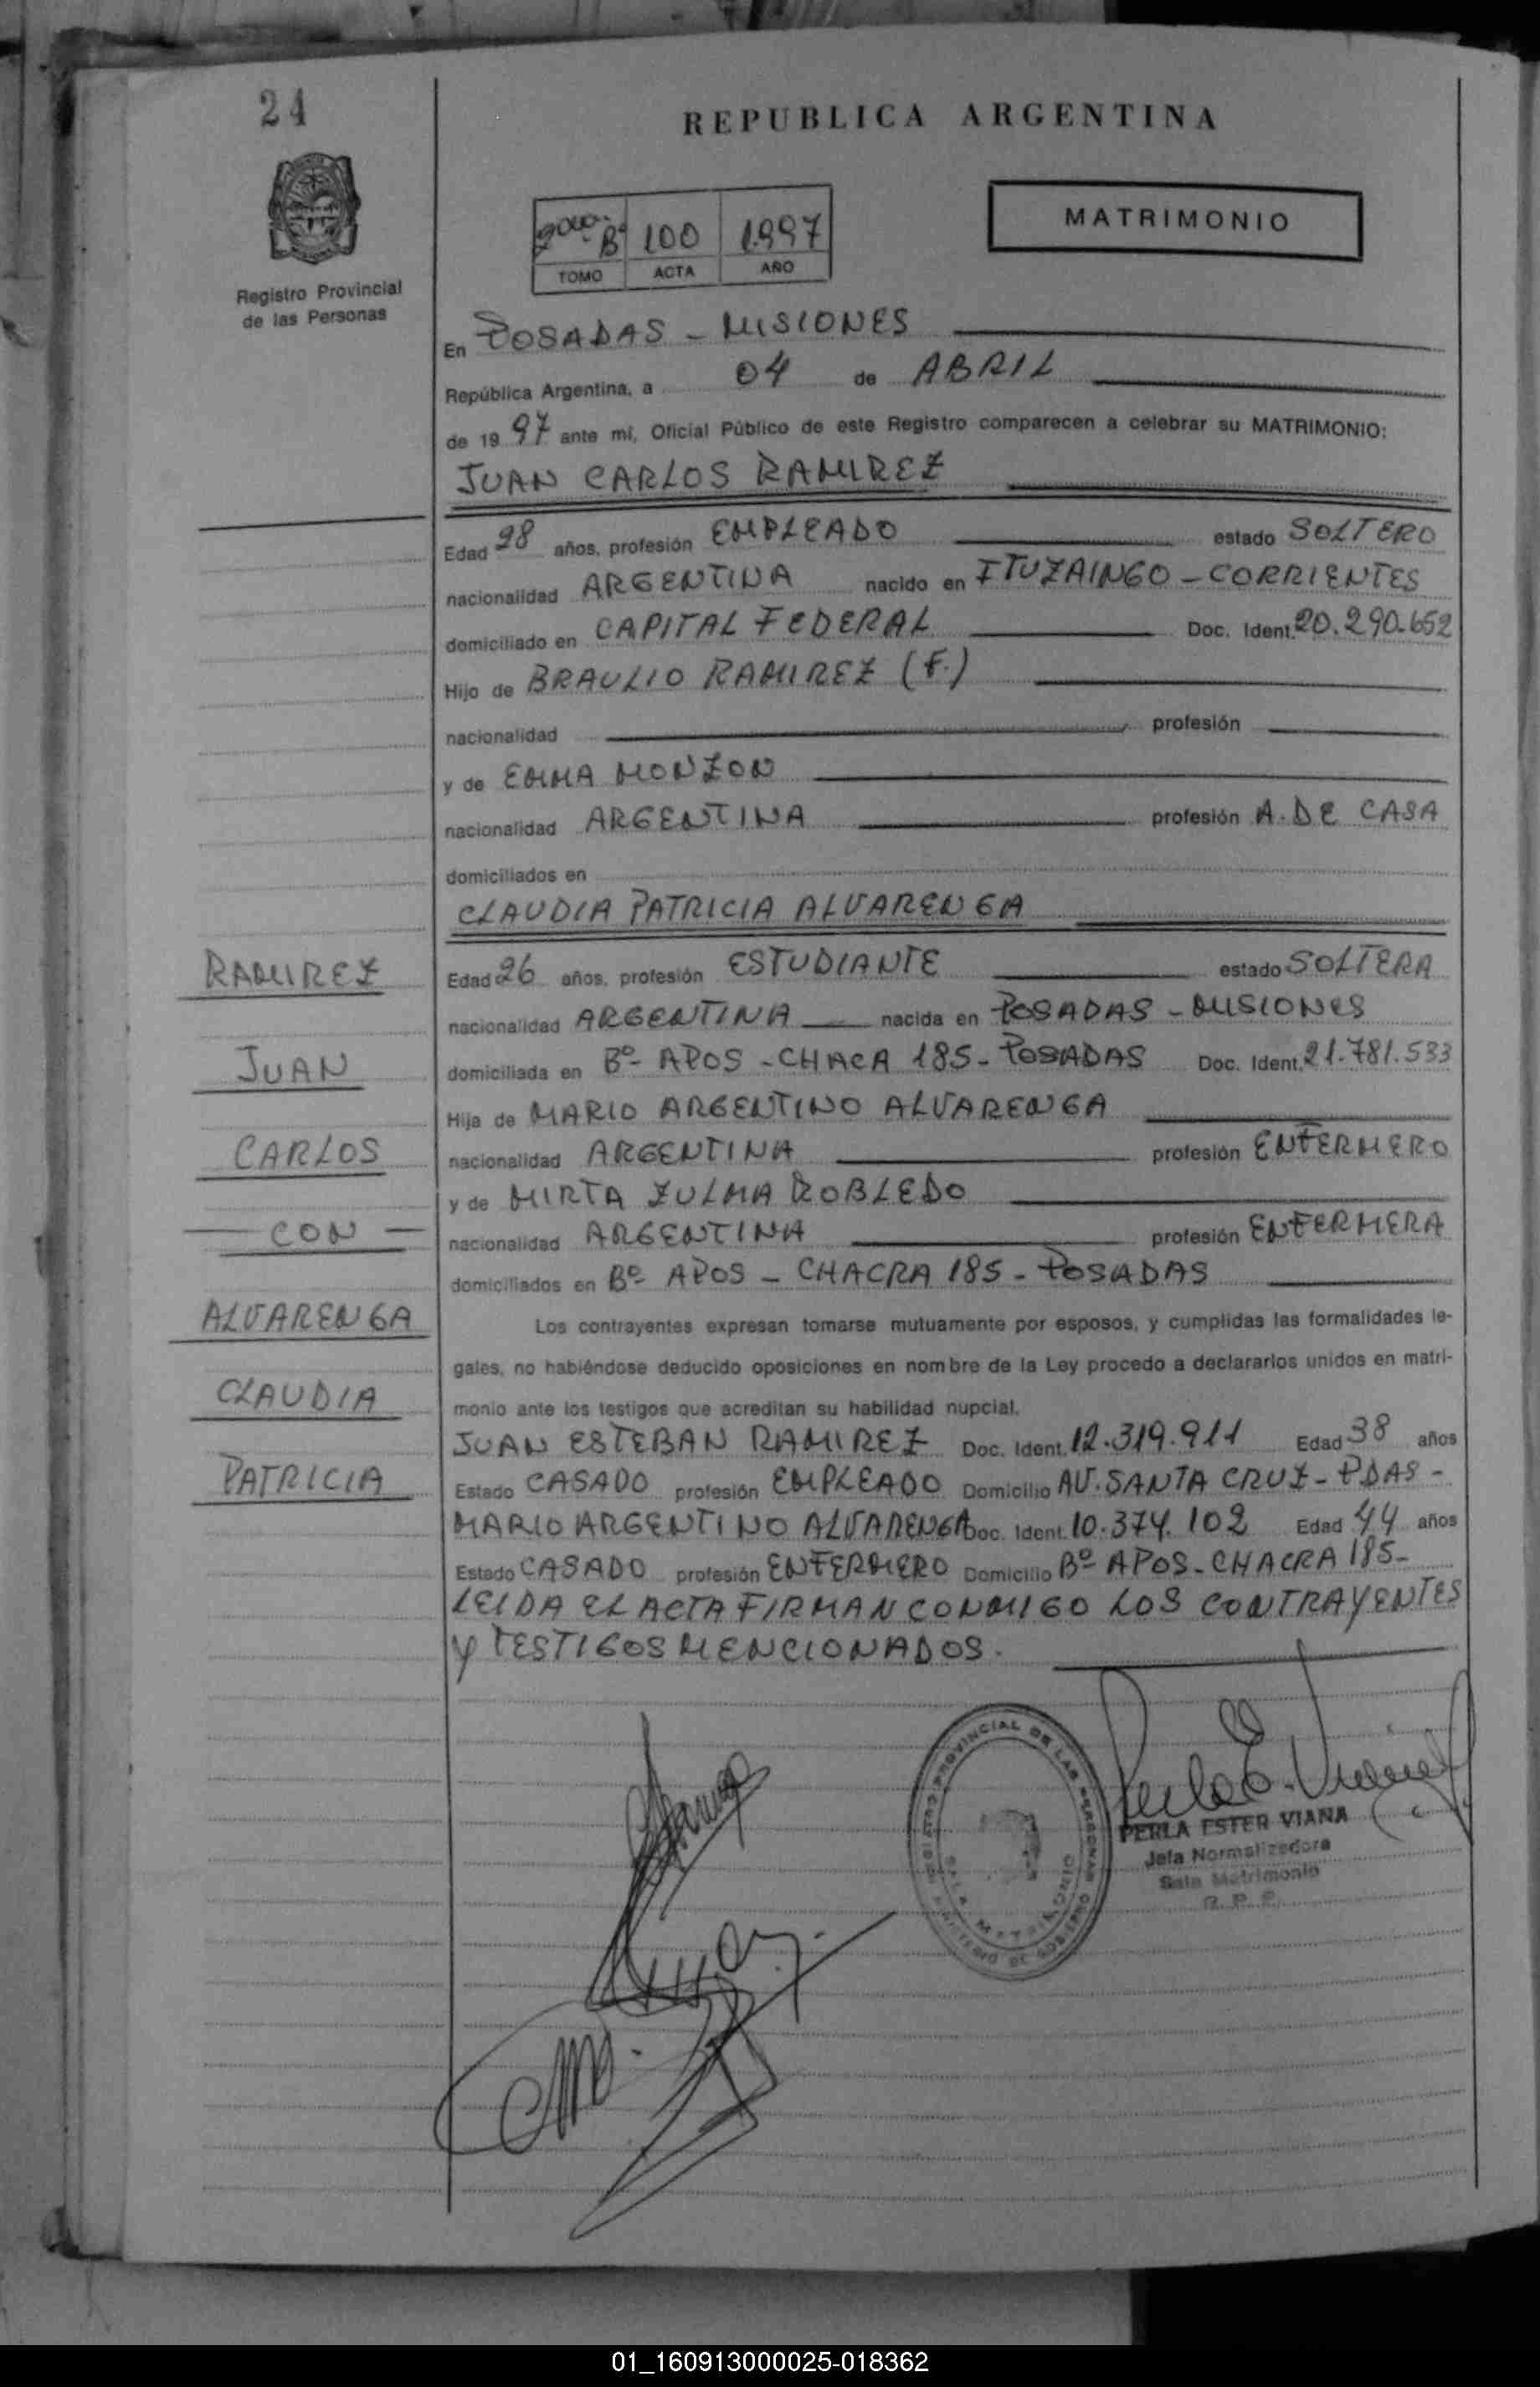 24
REPUBLICA ARGENTINA
MATRIMONIO
Bº 100 1.997
TOMO ACTA AÑO
Registro Provincial
de las Personas
En POSADAS - MISIONES
República Argentina, a 04 de ABRIL
de 1997 ante mí, Oficial Público de este Registro comparecen a celebrar su MATRIMONIO:
JUAN CARLOS RAMIREZ
Edad 28 años, profesión EMPLEADO estado SOLTERO
nacionalidad ARGENTINA nacido en ITUZAINGO - CORRIENTES
domiciliado en CAPITAL FEDERAL Doc. Ident. 20.290.652
Hijo de BRAULIO RAMIREZ (F.)
nacionalidad profesión
y de EMMA MONZON
nacionalidad ARGENTINA profesión A. DE CASA
domiciliados en
CLAUDIA PATRICIA ALVARENGA
Edad 26 años, profesión ESTUDIANTE estado SOLTERA
nacionalidad ARGENTINA nacida en POSADAS - MISIONES
domiciliada en Bº- APOS - CHACA 185 - POSADAS Doc. Ident. 21.781.533
Hija de MARIO ARGENTINO ALVARENGA
nacionalidad ARGENTINA profesión ENFERMERO
y de MIRTA ZULMA ROBLEDO
nacionalidad ARGENTINA profesión ENFERMERA
domiciliados en Bº APOS - CHACRA 185 - POSADAS
RAMIREZ
JUAN
CARLOS
- CON -
ALVARENGA
CLAUDIA
PATRICIA
Los contrayentes expresan tomarse mutuamente por esposos, y cumplidas las formalidades le-
gales, no habiéndose deducido oposiciones en nombre de la Ley procedo a declararlos unidos en matri-
monio ante los testigos que acreditan su habilidad nupcial.
JUAN ESTEBAN RAMIREZ Doc. Ident. 12.319.911 Edad 38 años
Estado CASADO profesión EMPLEADO Domicilio AV. SANTA CRUZ - PDAS -
MARIO ARGENTINO ALVARENGA Doc. Ident. 10.374.102 Edad 44 años
Estado CASADO profesión ENFERMERO Domicilio Bº APOS - CHACRA 185 -
LEIDA EL ACTA FIRMAN CONMIGO LOS CONTRAYENTES
Y TESTIGOS MENCIONADOS.
REGISTRO PROVINCIAL DE LAS PERSONAS
MINISTERIO DE GOBIERNO
SALA MATRIMONIO
PERLA ESTER VIANA
Jefa Normalizadora
Sala Matrimonio
R. P. P.
01_160913000025-018362